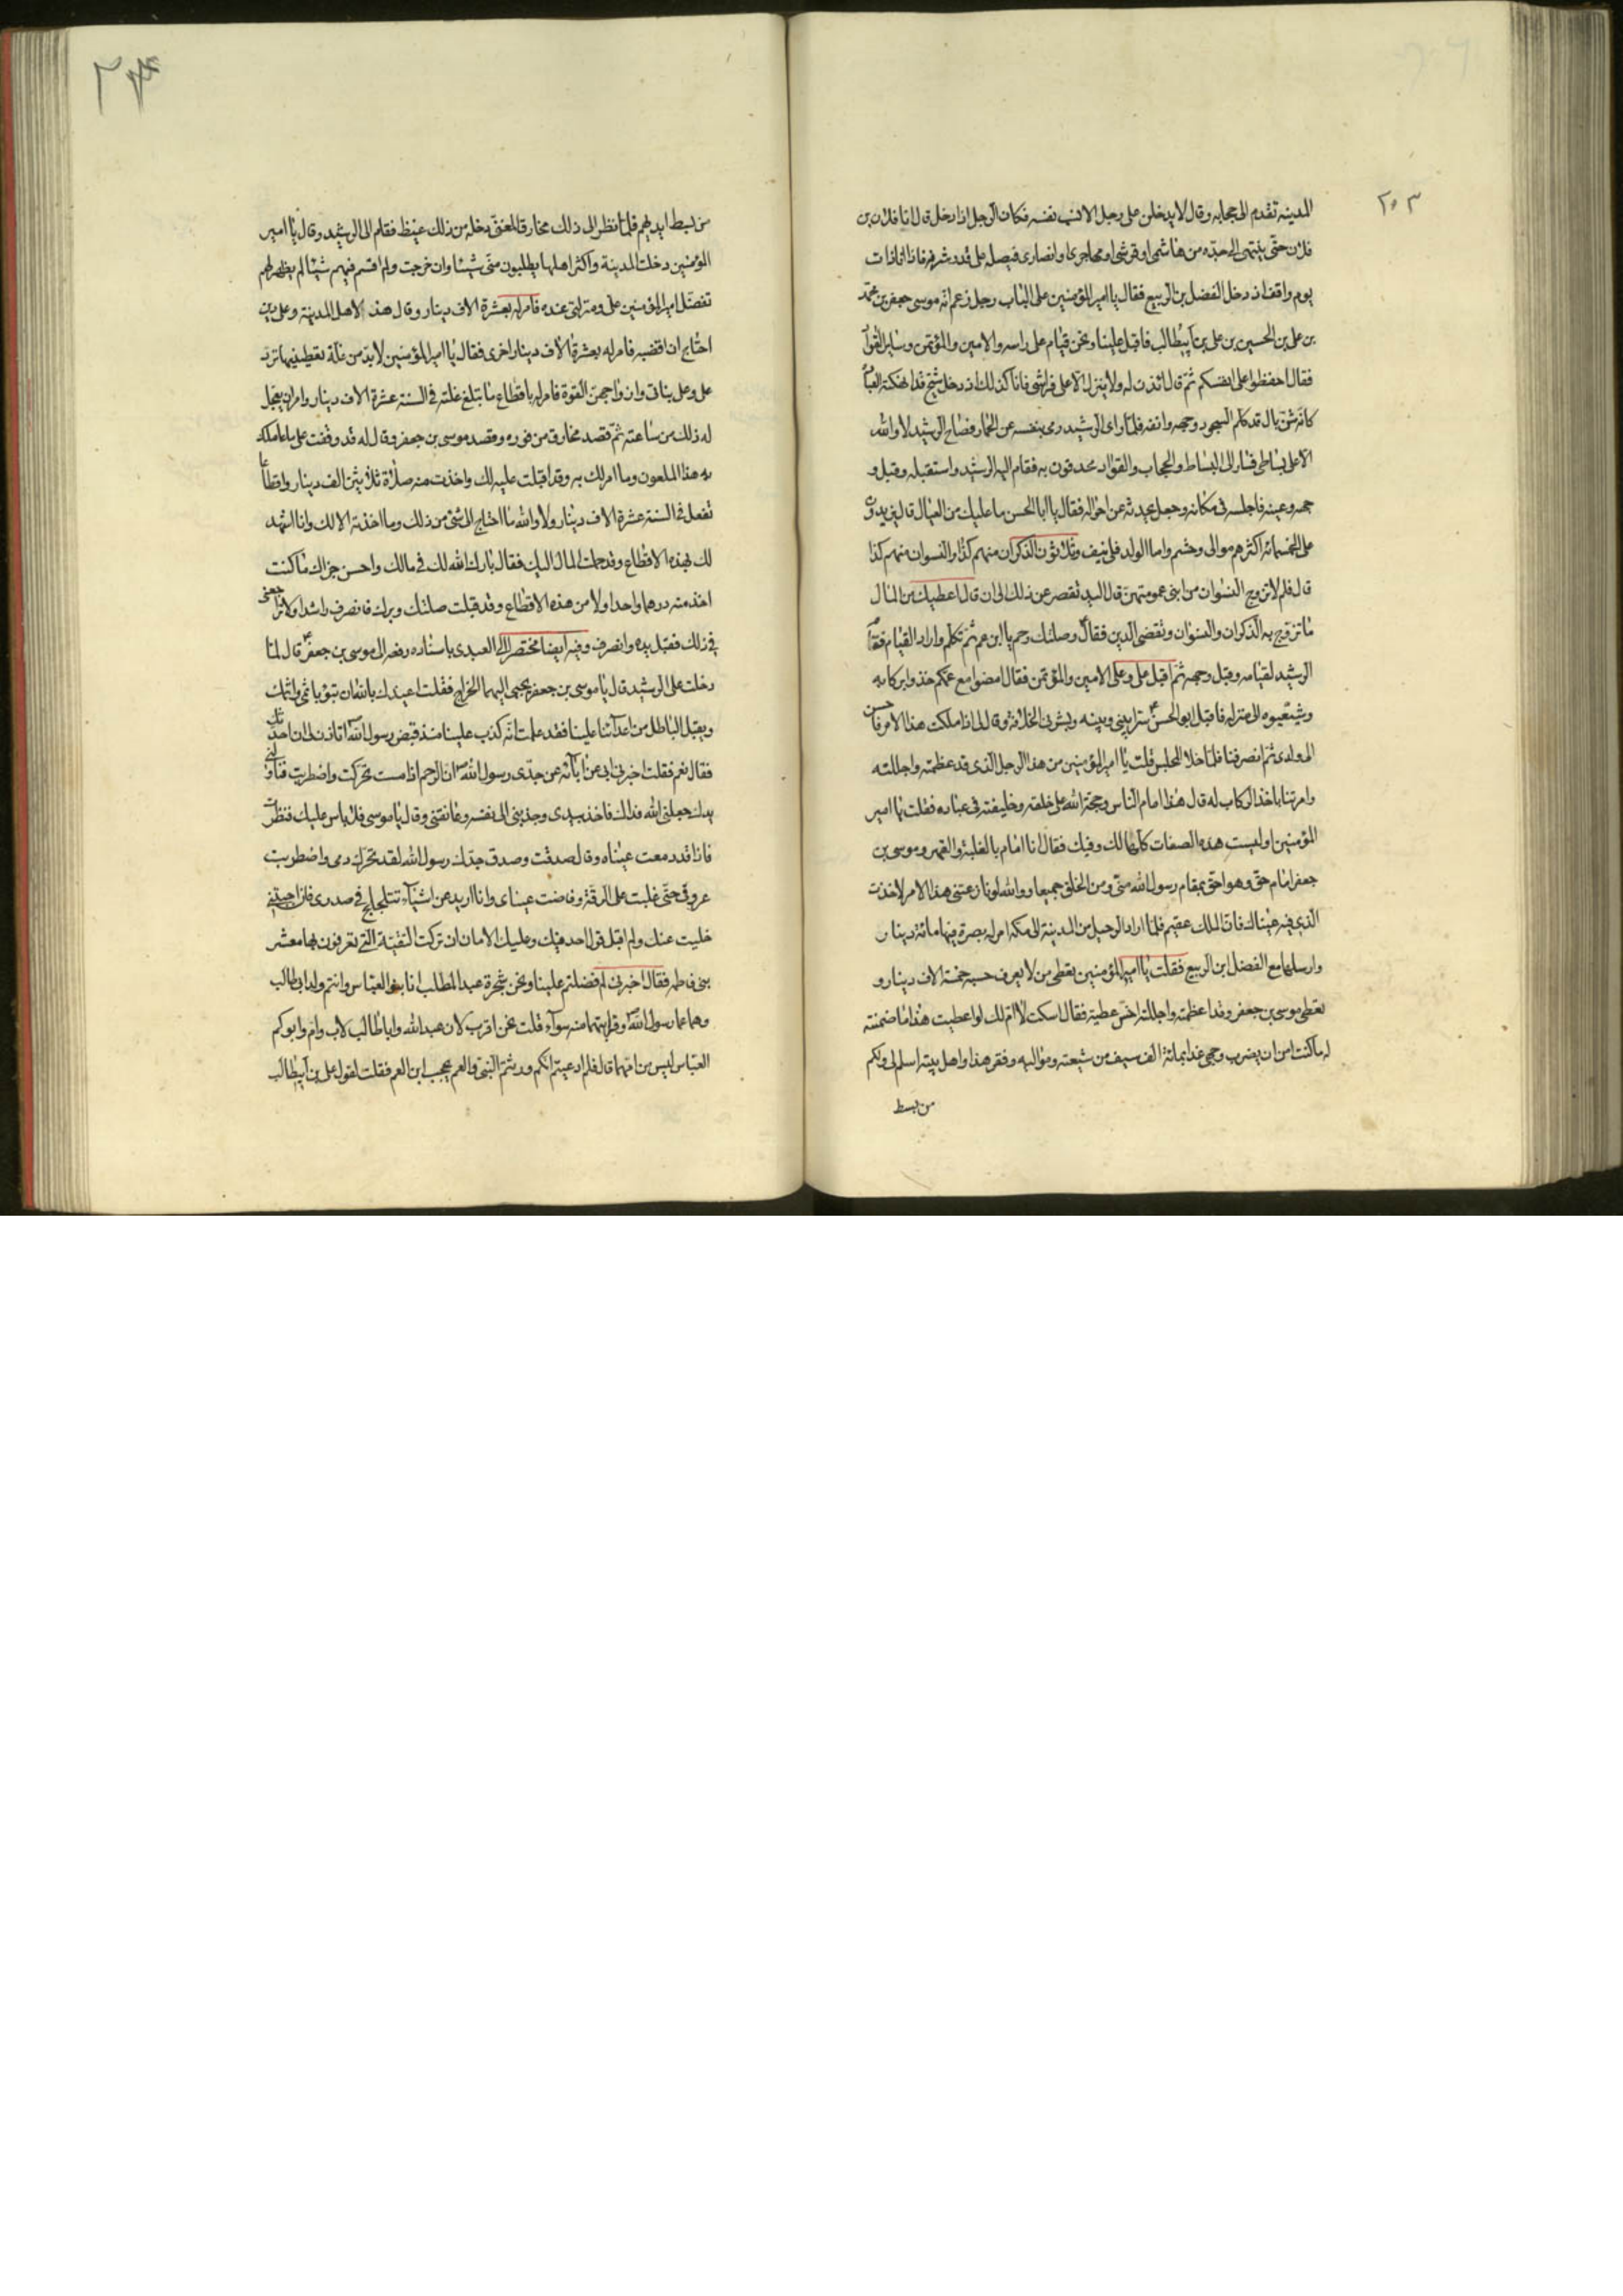 ٢٠٣
المدينه تقدم الى حجابه وقال لا يدخلن على رجل الا نسب نفسه فكان الرجل اذا دخل قال انا فلان بن
فلان حتى ينتهى الى جده من هاشمى او قرشى او مهاجرى او انصارى فيصله على قدر شرفه فاذا انا ذات
يوم واقف اذ دخل الفضل بن الربيع فقال يا امير المؤمنين على الباب رجل زعم انه موسى جعفر بن محمد
بن على بن الحسين بن على بن ابيطالب فاقبل علينا ونحن قيام على راسه والامين والمؤتمن وساير القواد
فقال احفظوا على انفسكم ثم قال ائذن له ولا ينزل الا على فراشى فانا كذلك اذ دخل شيخ قد انهكته العبادة
كانه شن بال قد كلم السجود وجهه وانفه فلما راى الرشيد رمى بنفسه عن الحمار فصاح الرشيد لا والله
الا على بساطى فسار الى البساط والحجاب والقواد محدقون به فقام اليه الرشيد واستقبله وقبل و
جهه وعينه فاجلسه فى مكانه وجعل يحدثه عن احواله فقال يا ابا الحسن ما عليك من العيال قال يزيدون
على الخمسمائه اكثرهم موالى وحشم واما الولد فلى نيف وثلاثون الذكران منهم كذا والنسوان منهم كذا
قال فلم لا تزوج النسوان من ابنى عمومتهن قال اليد تقصر عن ذلك الى ان قال اعطيك من المال
ما تزوج به الذكران والنسوان وتقضى الدين فقال وصلتك رحم يا ابن عم ثم تكلم واراد القيام فقام
الرشيد لقيامه وقبل وجهه ثم اقبل على وعلى الامين والمؤتمن فقال امضوا مع عمكم خذوا بركابه
وشيعوه الى منزله فاقبل ابو الحسن سرا بينى وبينه وبشرنى الخلافة وقال لى اذا ملكت هذا الامر فاحسن
الى ولدى ثم انصرفنا فلما خلا المجلس قلت يا امير المؤمنين من هذا الرجل الذى قد عظمته واجللته
وامرتنا باخذ الركاب له قال هذا امام الناس وحجة الله على خلقه وخليفته فى عباده فقلت يا امير
المؤمنين اوليست هذه الصفات كلها لك وفيك فقال انا امام بالغلبة والقهر وموسى بن
جعفر امام حق وهو احق بمقام رسول الله منى ومن الخلق جميعا ووالله لو نازعتنى هذا الامر لاخذت
الذى فيه عيناك فان الملك عقيم فلما اراد الرحيل من المدينة الى مكه امر له بصرة فيها مائة دينار
وارسلها مع الفضل ابن الربيع فقلت يا امير المؤمنين يعطى من لا يعرف حسبه خمسة الاف دينار و
يعطى موسى بن جعفر وقد اعظمته واجللته اخس عطية فقال اسكت لا ام لك لو اعطيت هذا ما ضمنته
له ما كنت امن ان يضرب وجهى غدا بمائة الف سيف من شيعته ومواليه وفقر هذا واهل بيته اسلم لى ولكم
من بسط
من بسط ايديهم فلما نظر الى ذلك مخارق المغنى دخله من ذلك غيظ فقام الى الرشيد وقال يا امير
المؤمنين دخلت المدينة واكثر اهلها يطلبون منى شيئا وان خرجت ولم اقسم فيهم شيئا لم يظهر لهم
تفضل امير المؤمنين على ومنزلتى عنده فامر له بعشرة الاف دينار وقال هذا لاهل المدينة وعلى دين
احتاج ان اقضيه فامر له بعشرة الاف دينار اخرى فقال يا امير المؤمنين لا بد من غلة تعطينيها ترد
على وعلى بناتى وازواجهن القوة فامر له باقطاع ما يبلغ غلته فى السنه عشرة الاف دينار وامر ان يعجل
له ذلك من ساعته ثم قصد مخارق من فوره ومقصد موسى بن جعفر وقال له قد وقفت على ما عاملك
به هذا الملعون وما امر لك به وقد اقبلت عليه لك واخذت منه صلاة ثلاثين الف دينار واقطاعا
تفعل فى السنة عشرة الاف دينار ولا والله ما احتاج الى شئ من ذلك وما اخذته الا لك وانا اشهد
لك بهذه الاقطاع وقد حملت المال اليك فقال بارك الله لك فى مالك واحسن جزاك ما كنت
اخذ منه درهما واحدا ولا من هذه الاقطاع وقد قبلت صلتك وبرك فانصرف راشدا ولا تراجعنى
فى ذلك فقبل يده وانصرف وفيه ايضا مختصرا الى العبدى باسناده رفعه الى موسى بن جعفر قال لما
دخلت على الرشيد قال يا موسى بن جعفر يجبى اليهما الخراج فقلت اعيذك بالله ان تبوء باثمى واثمك
ويقبل الباطل من اعدائنا علينا فقد علمت انه كذب علينا منذ قبض رسول الله اتاذن لى ان احدثك
فقال نعم فقلت اخبرنى ابى عن ابائه عن جدى رسول الله ان الرحم اذا مست تحركت واضطربت فناولنى
يدك جعلنى الله فداك فاخذ بيدى وجذبنى الى نفسه وعانقنى وقال يا موسى فلا باس عليك فنظرت
فاذا قد دمعت عيناه وقال صدقت وصدق جدك رسول الله لقد تحرك دمى واضطربت
عروقى حتى غلبت على الرقة وفاضت عيناى وانا اريد عن اشياء تتلجلج فى صدرى فان اجبتنى
خليت عنك ولم اقبل قول احد فيك وعليك الامان ان تركت التقية التى تعرفون بها معشر
بنى فاطمه فقال اخبرنى لم فضلتم علينا ونحن شجرة عبد المطلب انا بنو العباس وانتم ولد ابى طالب
وهما عما رسول الله وقرابتهما منه سواء قلت نحن اقرب لان عبد الله وابا طالب لاب وام وابوكم
العباس ليس من امهما قال فلم ادعيتم انكم ورثتم النبى والعم يحجب ابن العم فقلت لقول على بن ابيطالب